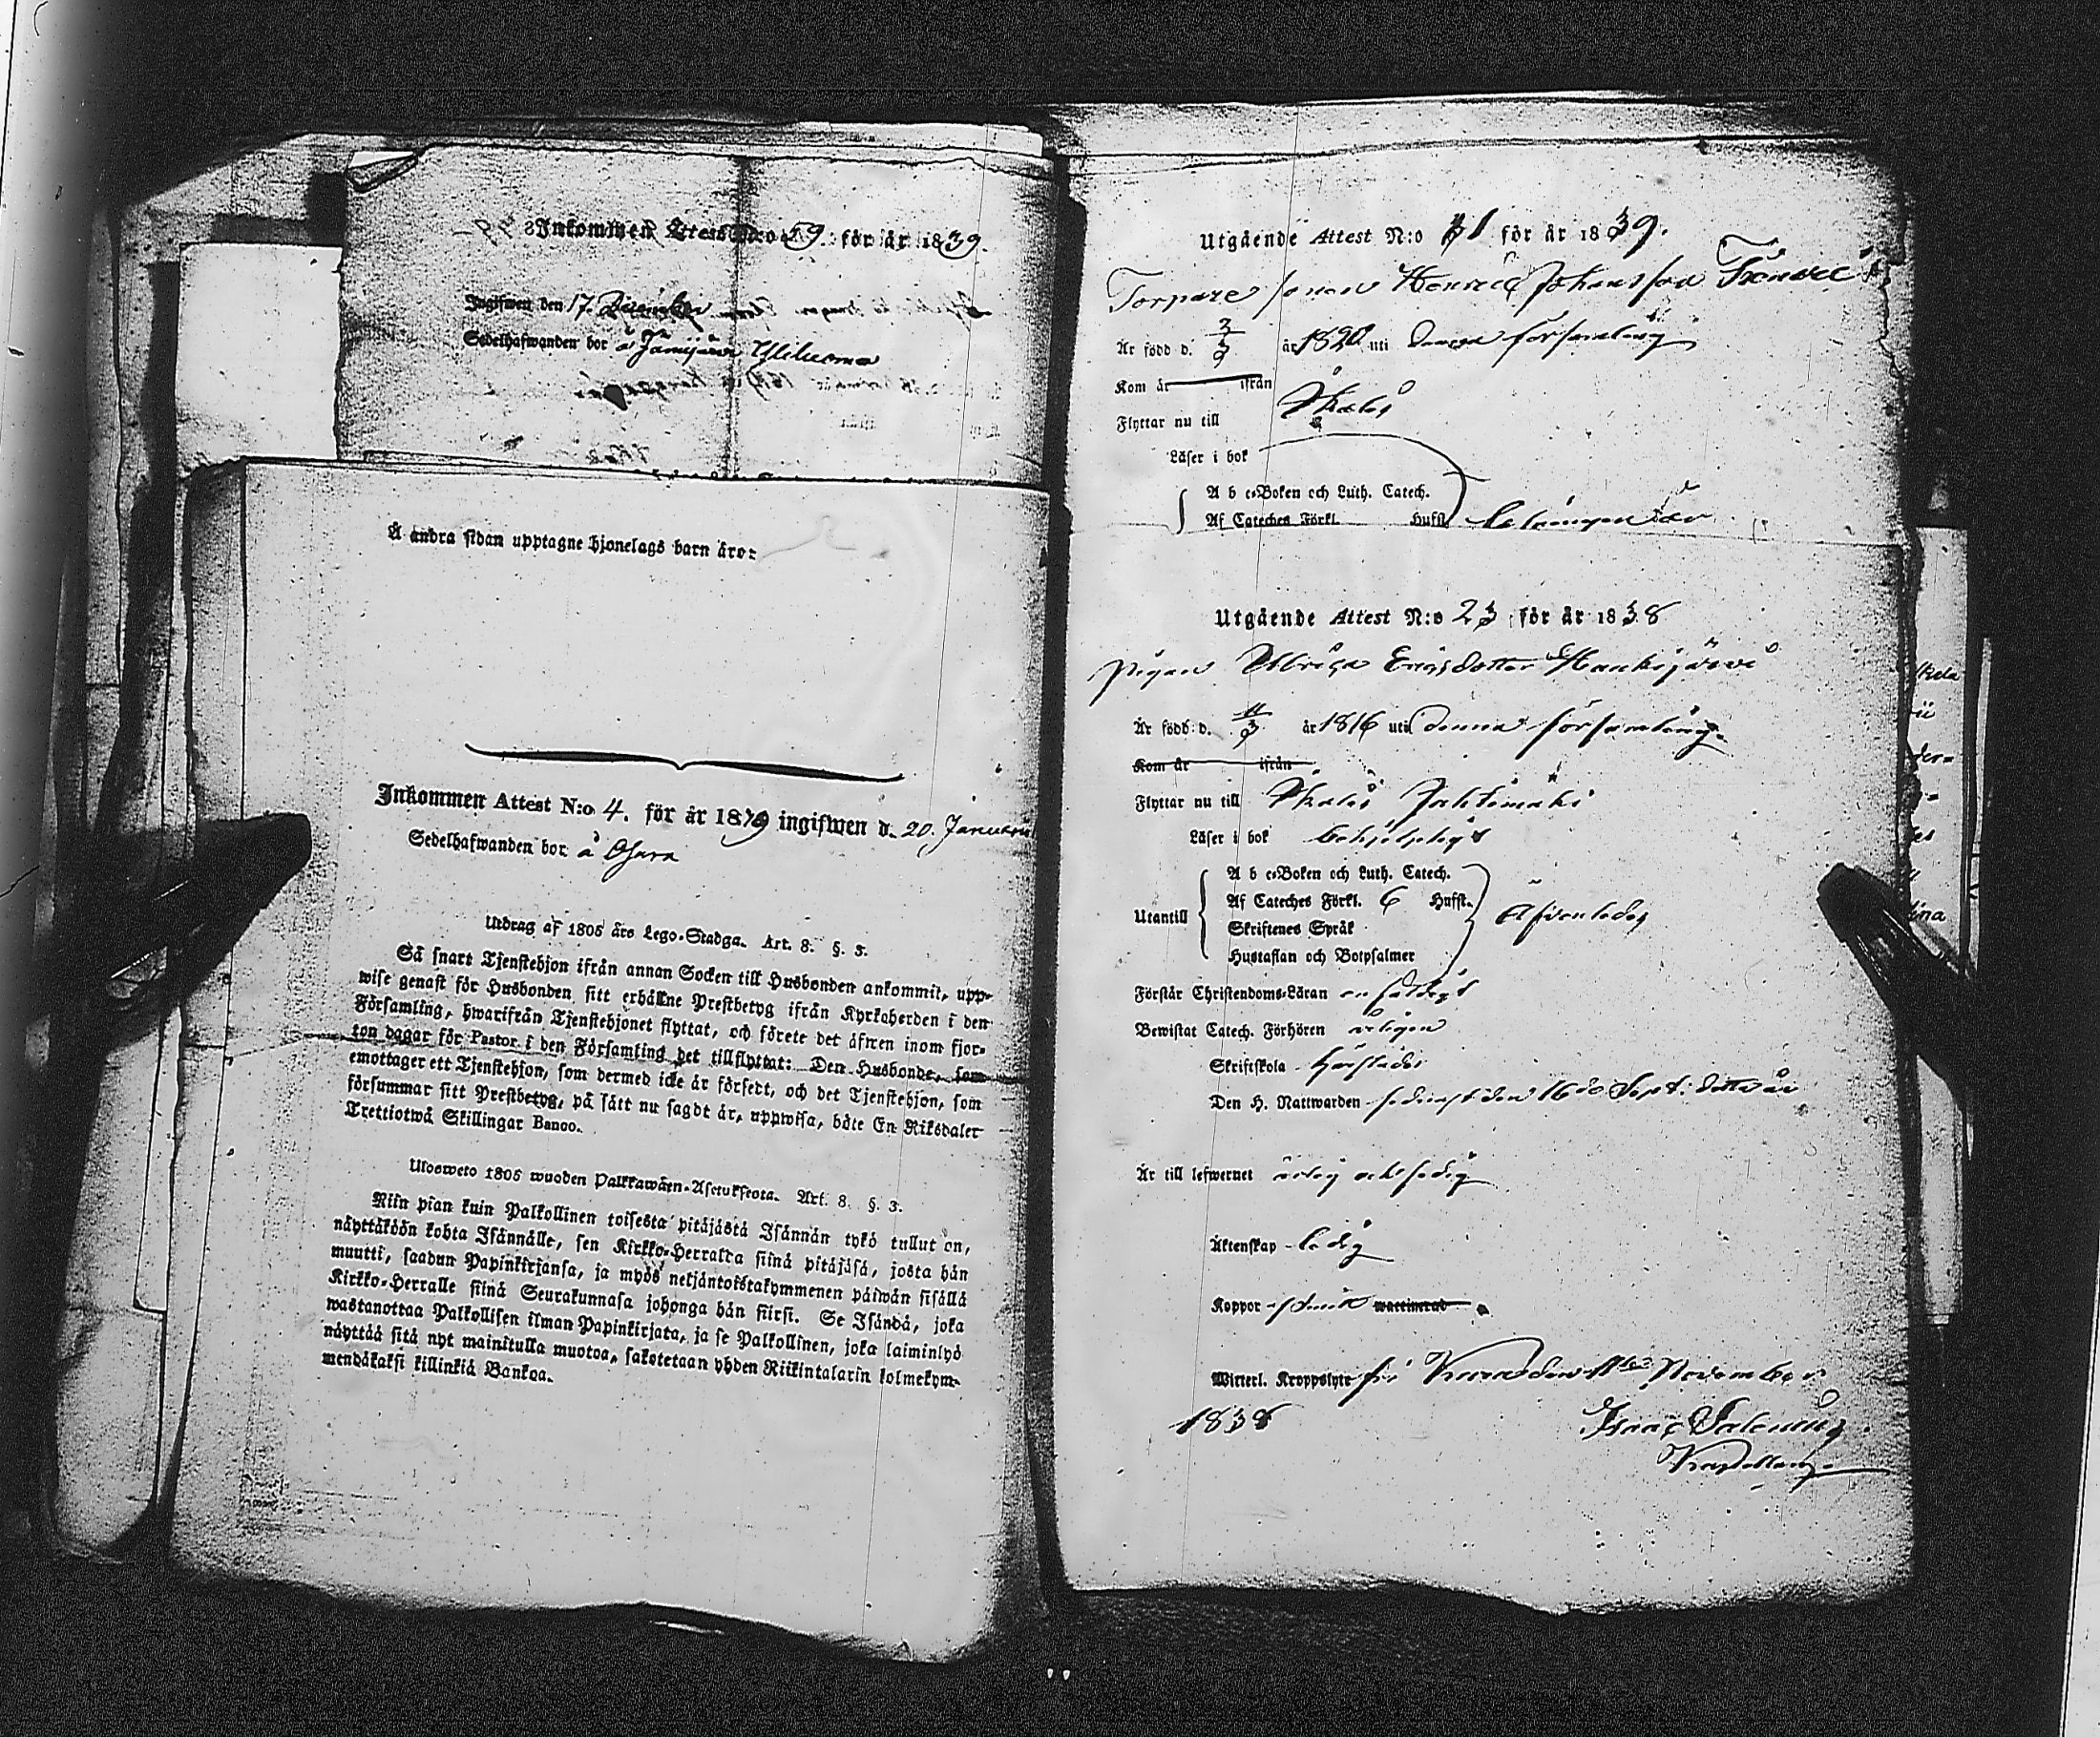 Inkommen Attest N:o 59. för år 1839.
Ingifwen den 17. December
Sedelhafwanden bor å Jämijärvi Ylilucoma
Å andra sidan upptagne hjonelags barn äro:
Inkommen Attest N:o 4. för år 1839 ingifwen d. 20. Januari
Sedelhafwanden bor å Osara
Utdrag af 1805 års Lego-Stadga. Art. 8. §. 3.
Så snart Tjenstehjon ifrån annan Socken till Husbonden ankommit, upp-
wise genast för Husbonden sitt erhållne Prestbetyg ifrån Kyrkoherden i den
Församling, hwarifrån Tjenstehjonet flyttat, och förete det äfwen inom fjor-
ton dagar för Pastor i den Församling det tillflyttat: Den Husbonde, som
emottager ett Tjenstehjon, som dermed icke är försedt, och det Tjenstehjon, som
försummar sitt Prestbetyg, på sätt nu sagdt är, uppwisa, böte En Riksdaler
Trettiotwå Skillingar Banco.
Ulosweto 1805 wuoden Palkkawäen-Asetuksesta. Art. 8. §. 3.
Niin pian kuin Palkollinen toisesta pitäjästä Isännän tykö tullut on,
näyttäköön kohta Isännälle, sen Kirkko-Herralta siinä pitäjäsä, josta hän
muutti, saadun Papinkirjansa, ja myös neljäntoistakymmenen päiwän sisällä
Kirkko-Herralle siinä Seurakunnasa johonga hän siirsi. Se Isändä, joka
wastanottaa Palkollisen ilman Papinkirjata, ja se Palkollinen, joka laiminlyö
näyttää sitä nyt mainitulla muotoa, sakotetaan yhden Riikintalarin kolmekym-
mendäkaksi killinkiä Bankoa.
Utgående Attest N:o 31 för år 1839.
Torpare sonen Henric Johansson
Är född d. 3/3 år 1820 uti denna församling
Kom år ifrån
Flyttar nu till Ikalis
Läser i bok
A b c-Boken och Luth. Catech.
Af Cateches Förkl. Hufst.
Utgående Attest N:o 23 för år 1838
pigan Ulrica Ericsdotter Hankijärvi
Är född d. 11/3 år 1816 uti denna församling
Kom år ifrån
Flyttar nu till Ikalis Jahtimäki
Läser i bok behjelpligt
A b c-Boken och Luth. Catech.
Utantill Af Cateches Förkl. 6 Hufst. Äfvenledes
Skriftenes Språk
Hustaflan och Botpsalmer
Förstår Christendoms-Läran enfaldigt
Bewistat Catech. Förhören årligen
Skriftskola
Den H. Nattwarden sednast den 16de Sept: detta år
Är till lefwernet ärlig och sedig
Äktenskap ledig
Koppor haft wattinerad
Witterl. Kroppslyte fri den 11te November
1838
Isaac Salenius
Kapellan